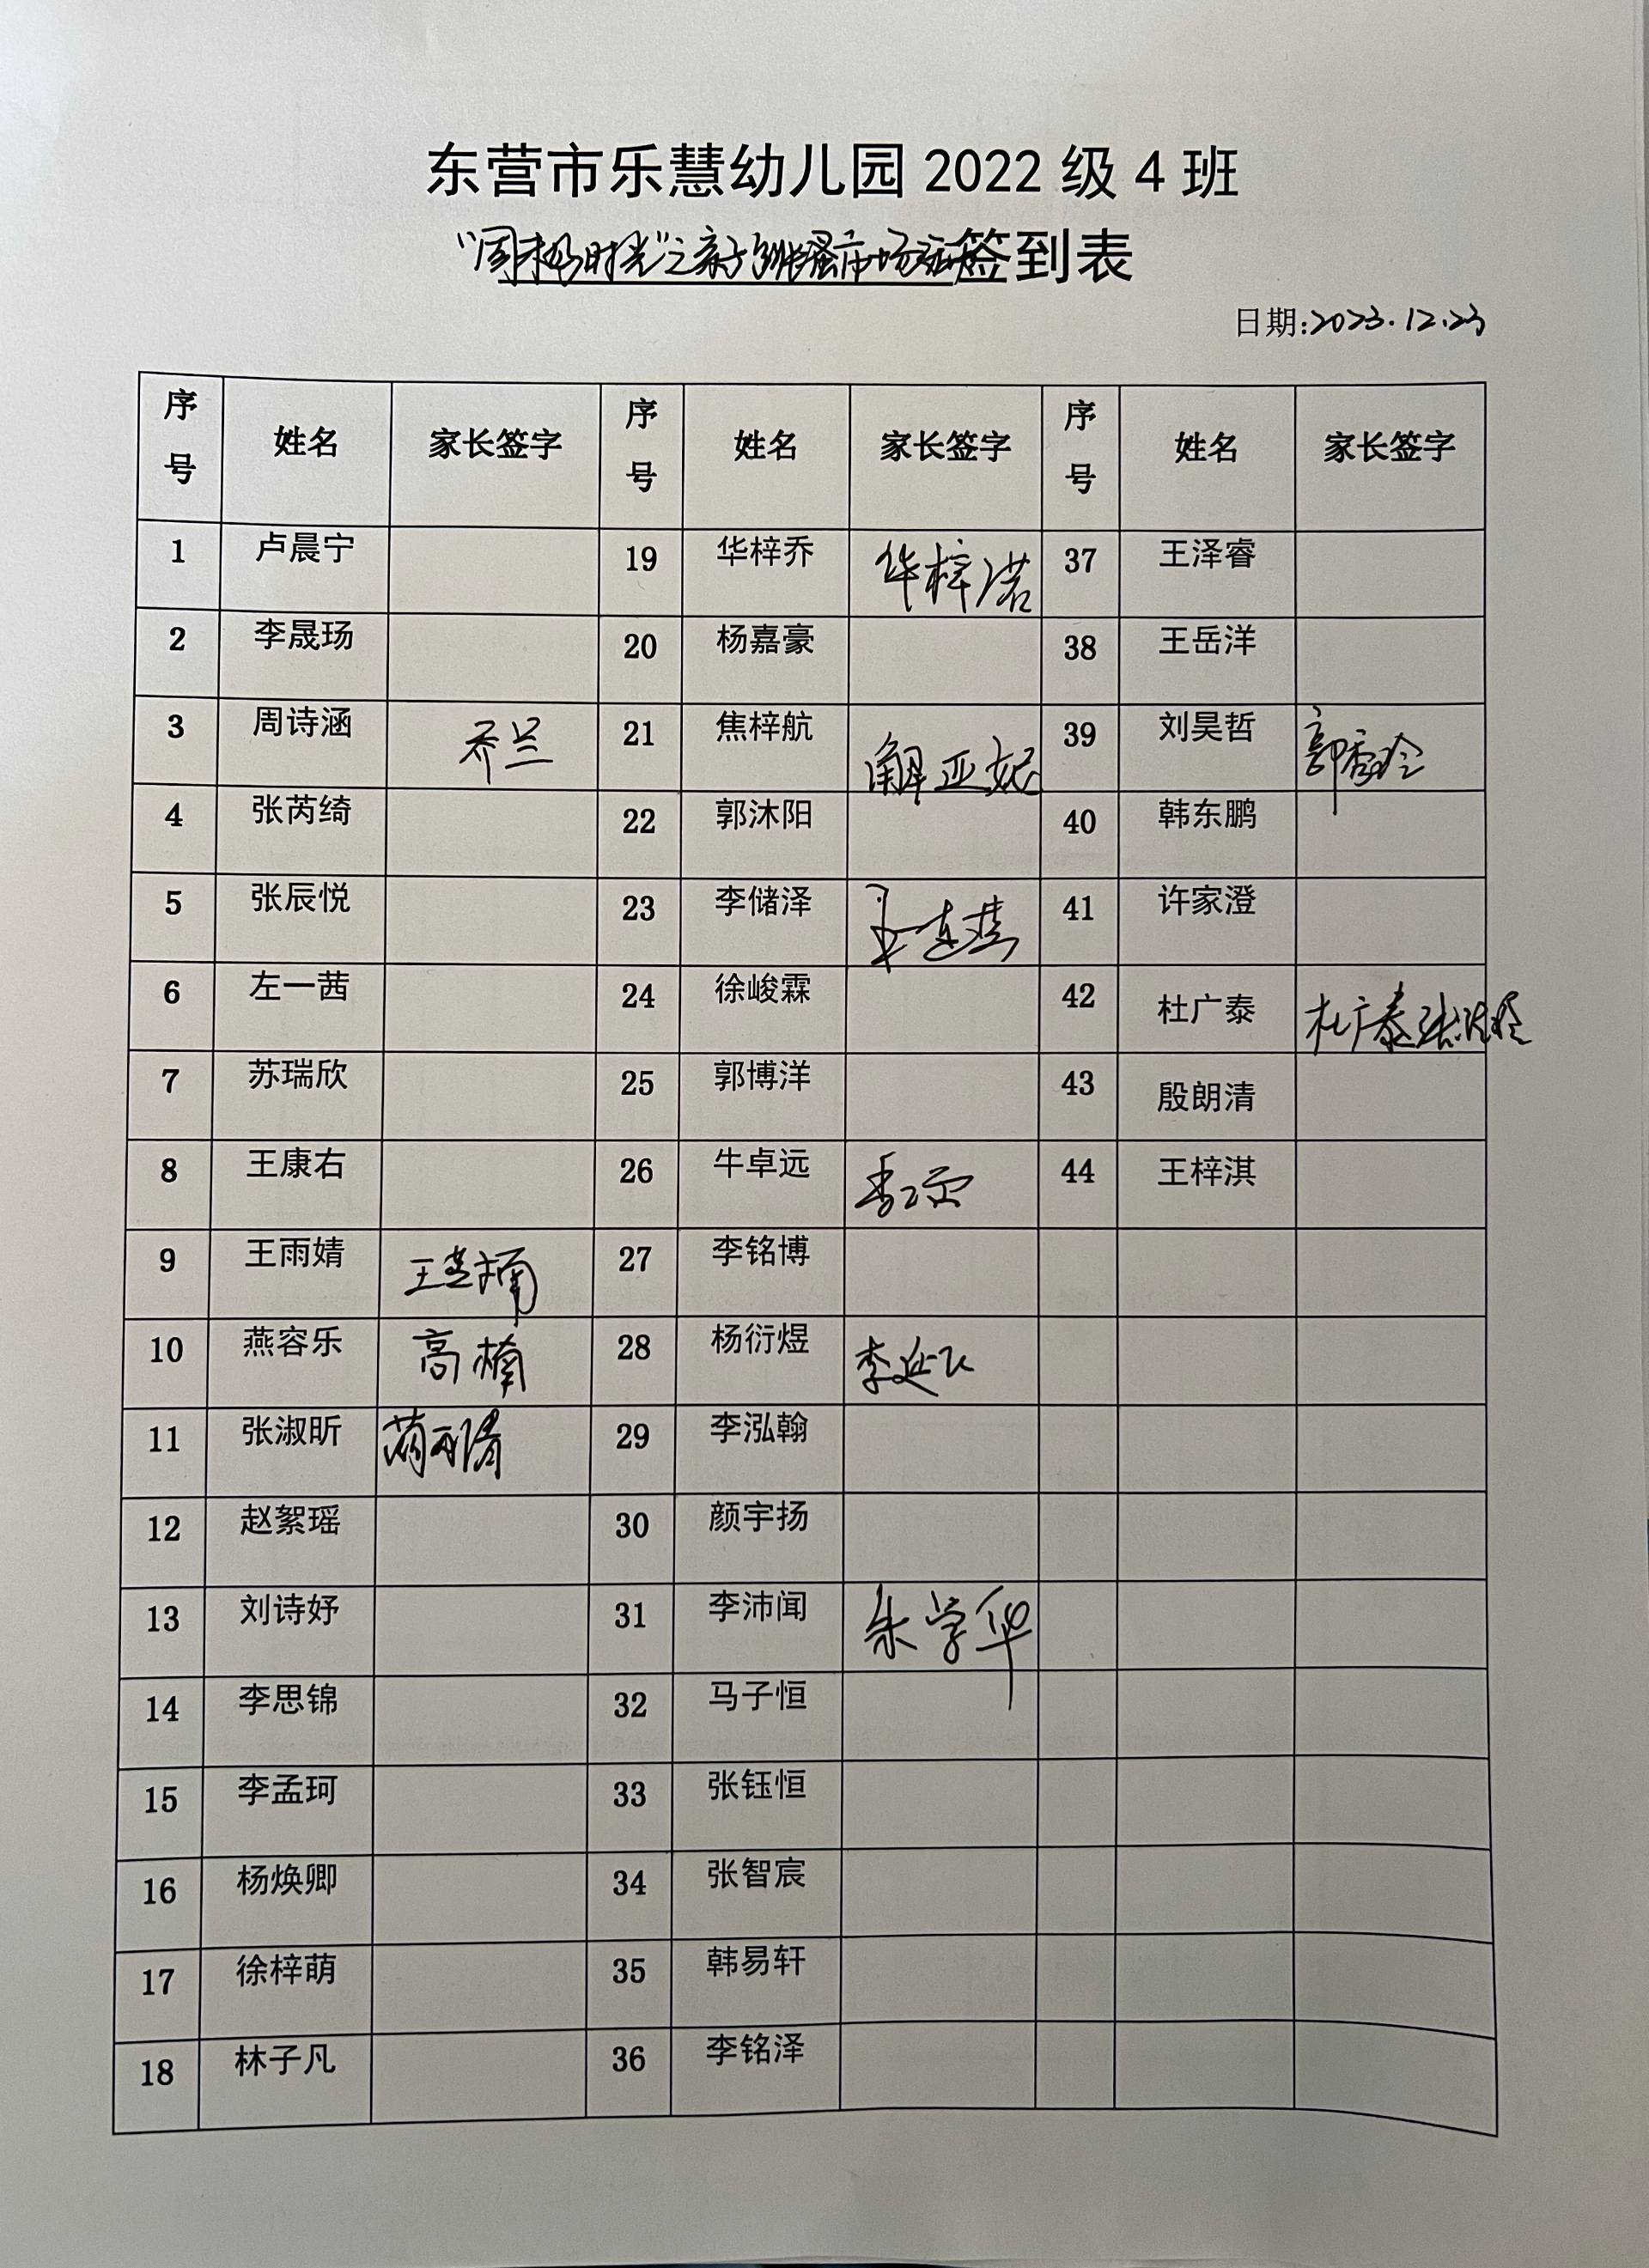 东营市乐慧幼儿园 2022 级 4 班
“周末好时光”之亲子跳蚤市场活动签到表
日期:2023.12.23
序号 姓名 家长签字 序号 姓名 家长签字 序号 姓名 家长签字
1 卢晨宁 19 华梓乔 华梓诺 37 王泽睿
2 李晟玚 20 杨嘉豪 38 王岳洋
3 周诗涵 乔兰 21 焦梓航 解亚妮 39 刘昊哲 郭秀玲
4 张芮绮 22 郭沐阳 40 韩东鹏
5 张辰悦 23 李储泽 41 许家澄
6 左一茜 24 徐峻霖 42 杜广泰 杜广泰
7 苏瑞欣 25 郭博洋 43 殷朗清
8 王康右 26 牛卓远 44 王梓淇
9 王雨婧 27 李铭博
10 燕容乐 高楠 28 杨衍煜 李延飞
11 张淑昕 29 李泓翰
12 赵絮瑶 30 颜宇扬
13 刘诗妤 31 李沛闻 朱学华
14 李思锦 32 马子恒
15 李孟珂 33 张钰恒
16 杨焕卿 34 张智宸
17 徐梓萌 35 韩易轩
18 林子凡 36 李铭泽